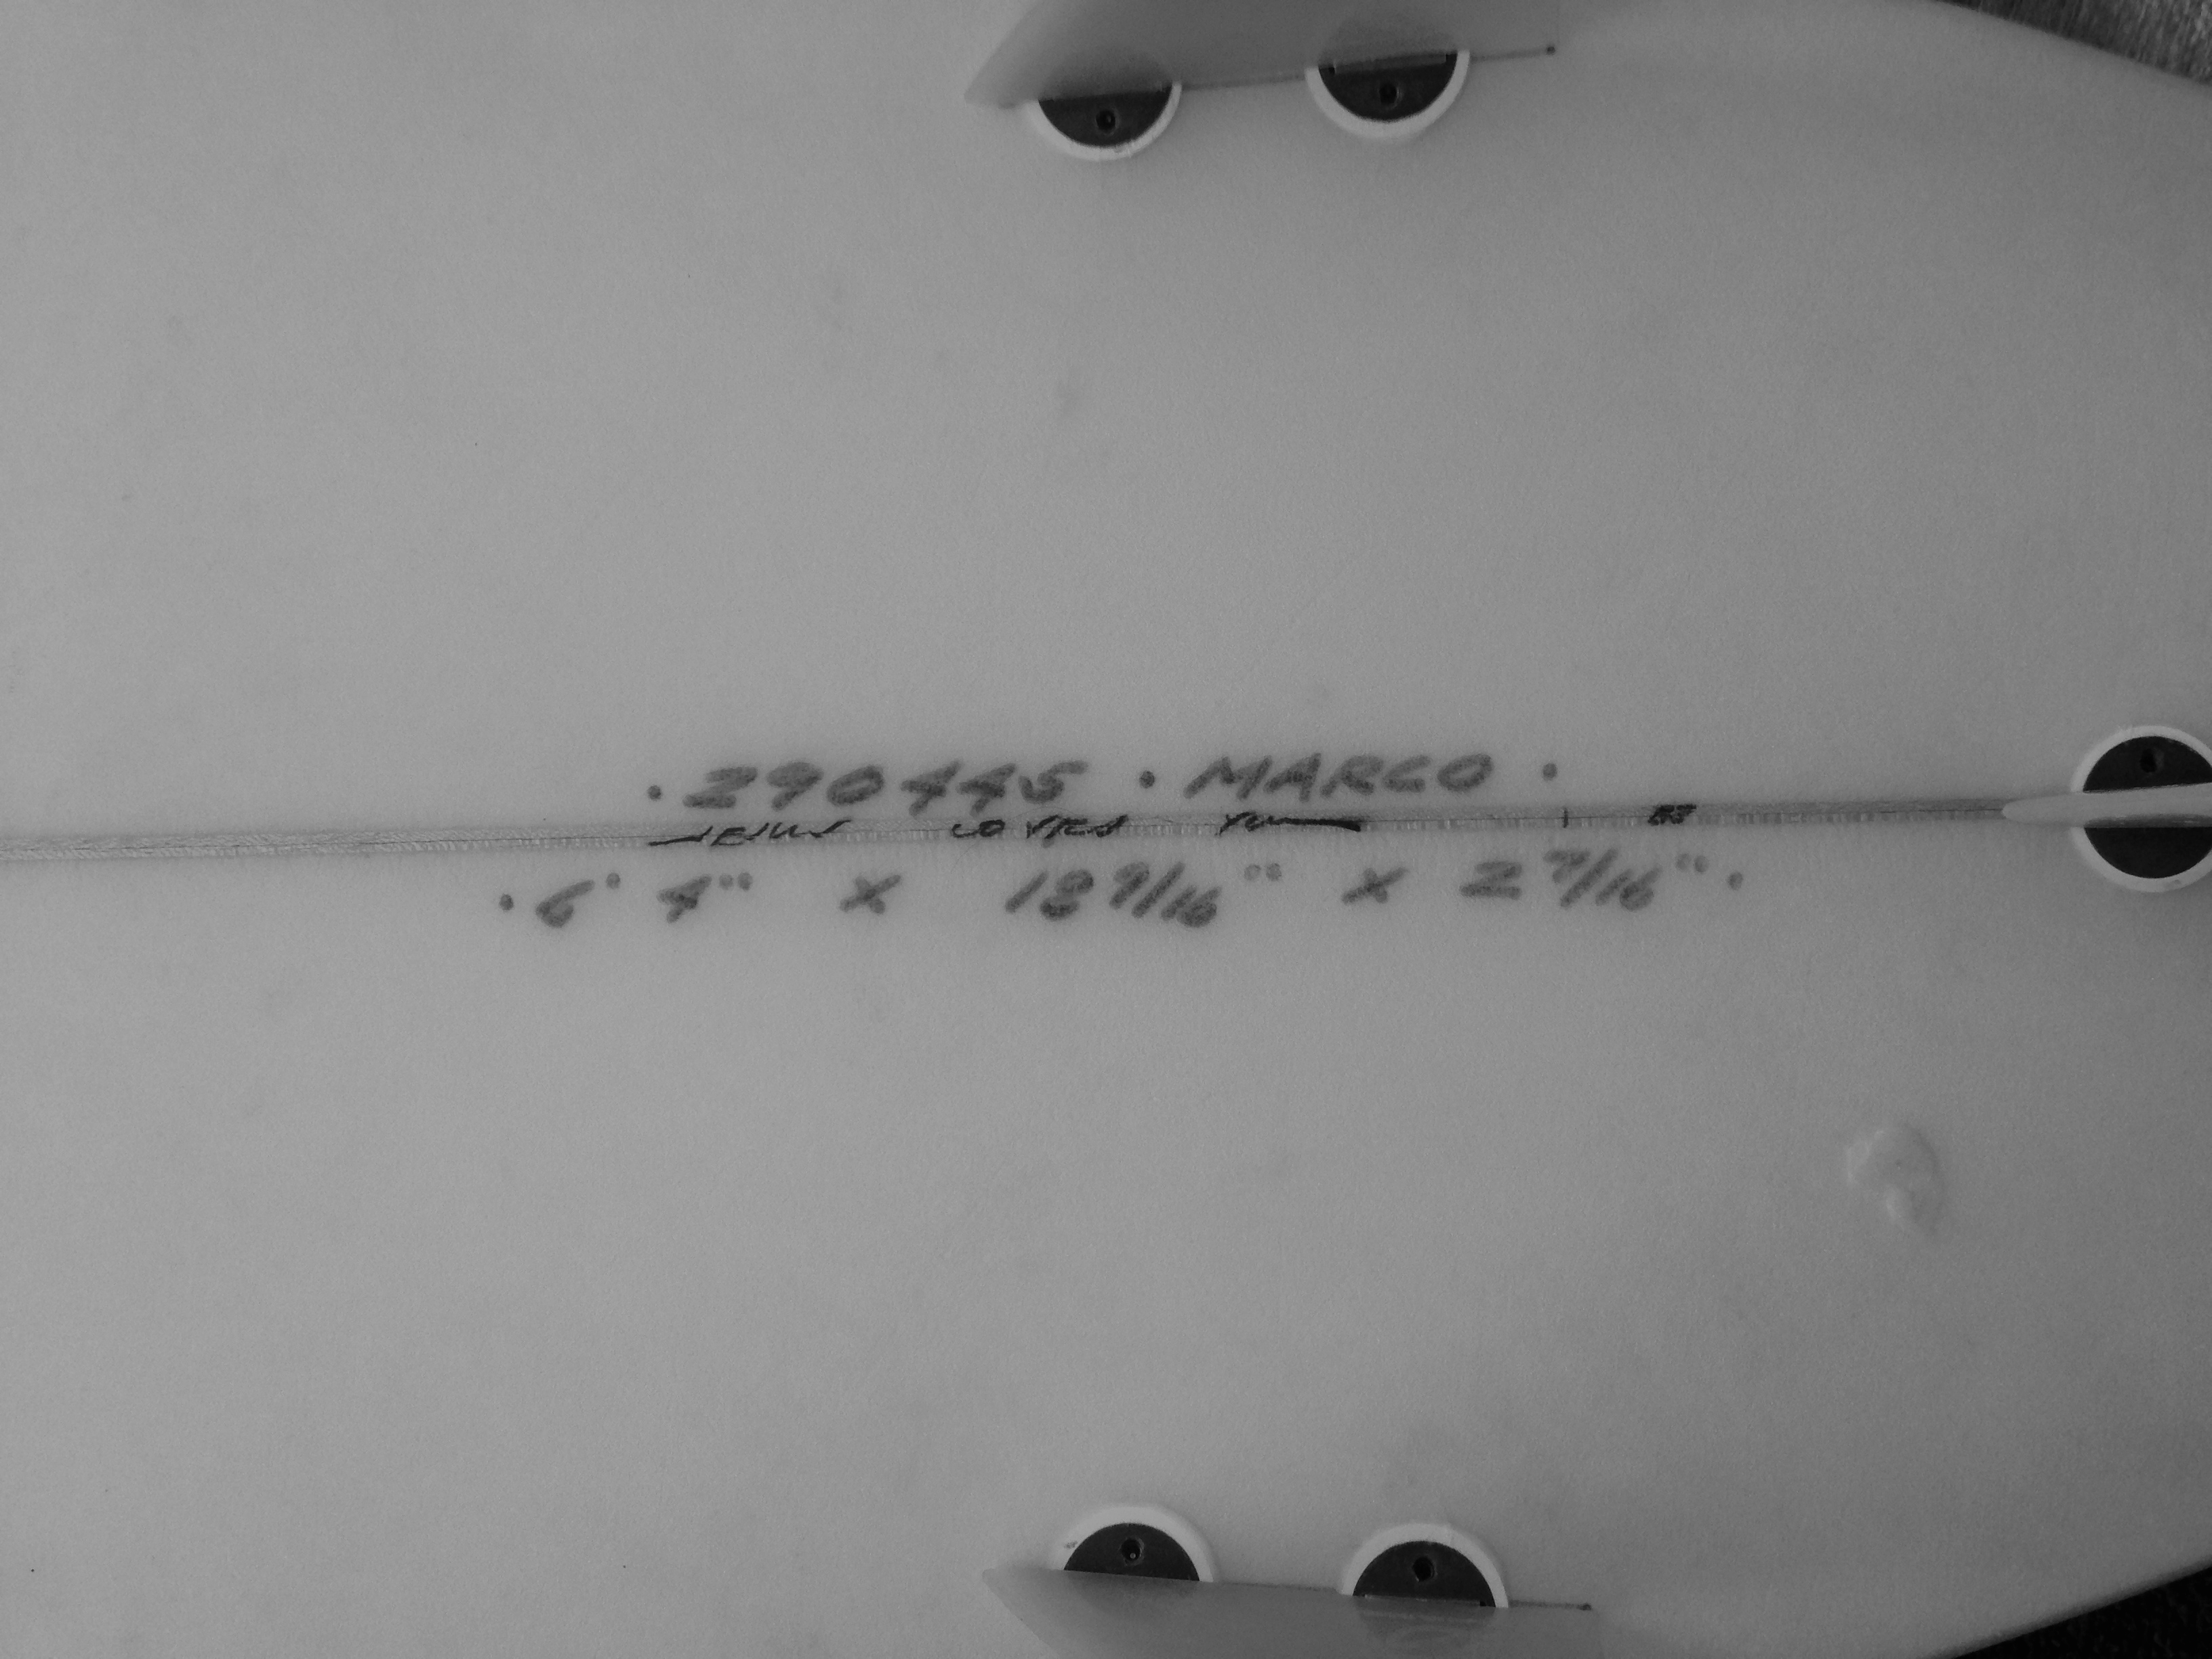 · 290445 · MARCO ·
JESUS LOVES YOU
· 6' 4" X 18 9/16" X 2 7/16" ·